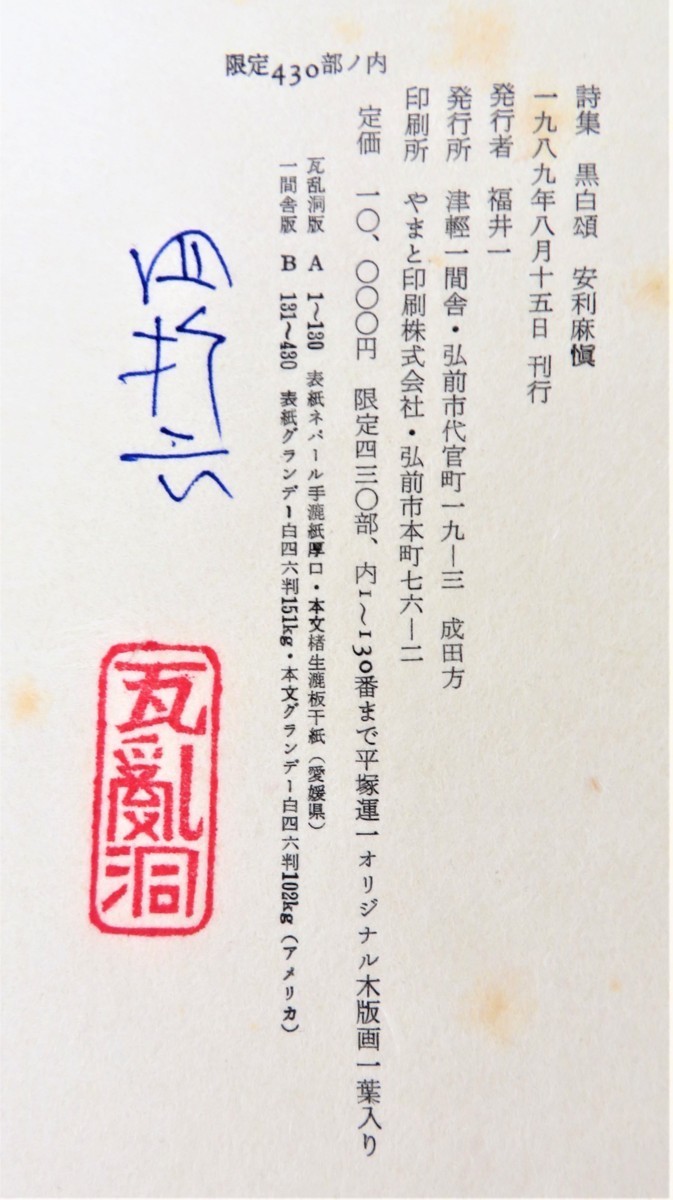 詩集　黒白頌　安利麻愼
一九八九年八月十五日 刊行
発行者　福井一
発行所　津軽一間舎・弘前市代官町一九―三　成田方
印刷所　やまと印刷株式会社・弘前市本町七六―二
定価　一〇、〇〇〇円　限定四三〇部、内1～130番まで平塚運一オリジナル木版画一葉入り
瓦乱洞版　A　1～130　表紙ネパール手漉紙厚口・本文楮生漉板干紙（愛媛県）
一間舎版　B　131～430　表紙グランデー白四六判151kg・本文グランデー白四六判102kg（アメリカ）
限定430部ノ内
瓦亂洞